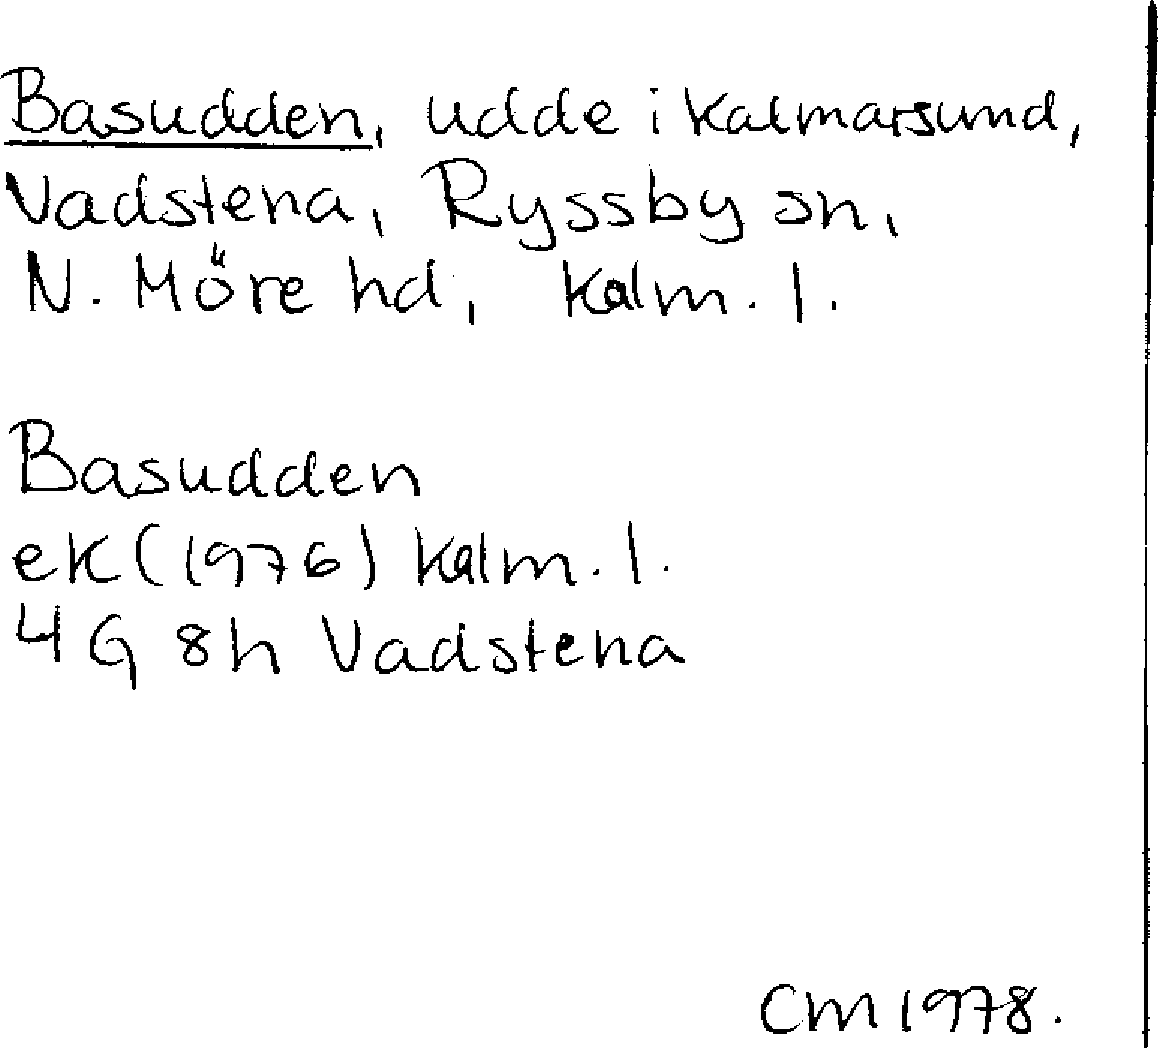 Basudden, udde i Kalmarsund,
Vadstena, Ryssby sn,
N. Möre hd, Kalm. l.
Basudden
ek (1976) Kalm. l.
4G 8h Vadstena
CM 1978.